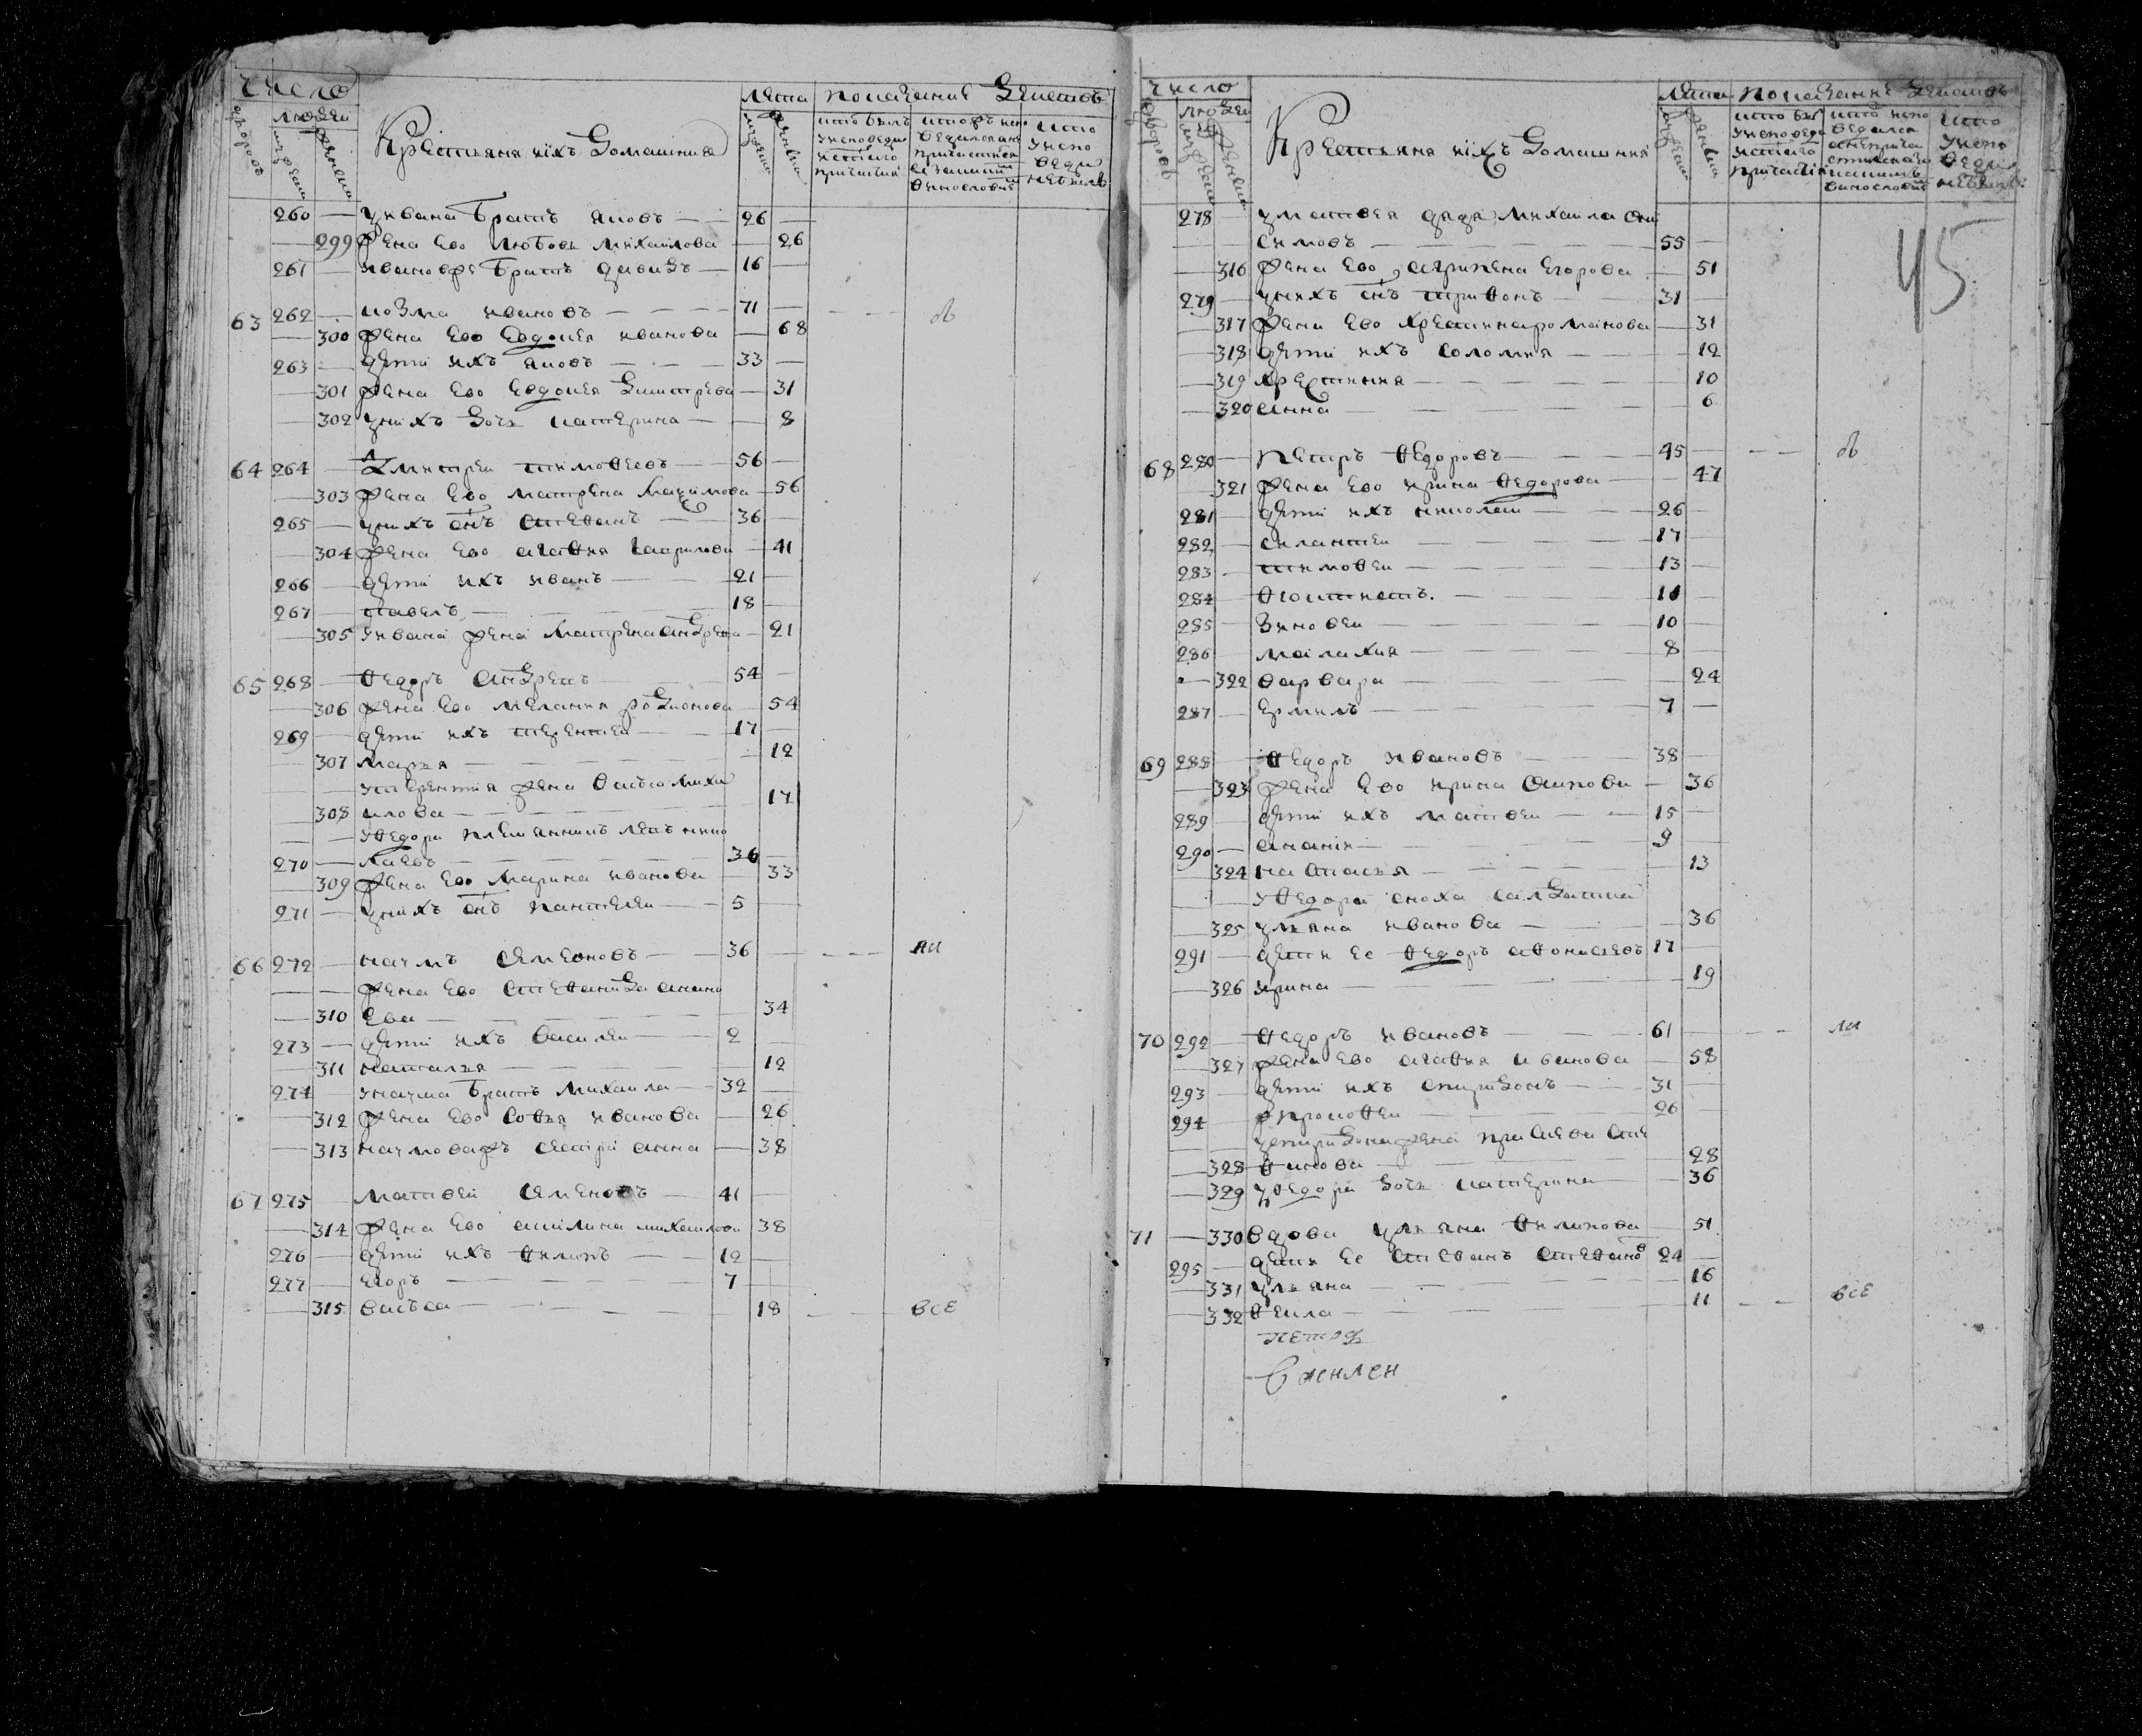 число
людеи
лета показание деиство
Крестьяня иихъ домашния
260 — уивана братъ яковъ — 26 —
— 299 жена ево любовь михаилова — 26
261 — ивановже братъ давидъ — 16 —
63 262 — козма ивановъ — 71 —
— 300 жена ево евдокея иванова — 68
263 — дети ихъ яковъ — 33 —
— 301 жена ево евдокея димитрева — 31
— 302 унихъ дочь катерина — 8
64 264 — дмитреи тимофеевъ — 56 —
— 303 жена ево матрена Максимова — 56
265 — унихъ снъ степанъ — 36 —
— 304 жена ево агафия гаврилова — 41
266 — дети ихъ иванъ — 21 —
267 — павелъ — 18 —
— 305 уивана жена матрена андреева — 21
65 268 — федоръ андреевъ — 54 —
— 306 жена ево мелания родионова — 54
269 — дети ихъ терентеи — 17 —
— 307 марья — 12
— — утерентия жена васьса михаи
— 308 лова — 17
— — уфедора племянникъ левъ нико
270 — лаевъ — 36 —
— 309 жена ево марина иванова — 33
271 — унихъ снъ пантелеи — 5 —
66 272 — наумъ семеновъ — 36 —
— — жена ево степанида анани
— 310 ева — 34
273 — дети ихъ василеи — 2 —
— 311 наталья — 12
274 — унаума братъ михаила — 32 —
— 312 жена ево софья иванова — 26
— 313 наумоважъ сестра анна — 38
67 275 — матвеи семеновъ — 41 —
— 314 жена ево акилина михаилова — 38
276 — дети ихъ филипъ — 12 —
277 — егоръ — 7 —
— 315 васьса — 18 — все
число
людеи
лета показание деиство
Крестьяня иихъ домашния
45
278 — уматвея дядя михаила они
симовъ — 55 —
— 316 жена ево агрипена егорова — 51
279 — унихъ снъ трифонъ — 31 —
— 317 жена ево хрестина романова — 31
— 318 дети ихъ соломия — 12
— 319 хрестинья — 10
— 320 анна — 6
68 280 — петръ федоровъ — 45 —
— 321 жена ево ирина федорова — 47
281 — дети ихъ николаи — 26 —
282 — силантеи — 17 —
283 — тимофеи — 13 —
284 — фоктистъ — 10
285 — зиновеи — 10 —
286 — малахия — 8 —
— 322 варвара — 24
287 — ермилъ — 7 —
69 288 — федоръ ивановъ — 38 —
— 323 жена ево ирина осипова — 36
289 — дети ихъ матвеи — 15 —
290 — анания — 9
— 324 настасья — 13
— — уфедора сноха салдатка
— 325 ульяна иванова — 36
291 — дети ее федоръ афонасевъ 17 —
— 326 ирина — 19
70 292 — федоръ ивановъ — 61 —
— 327 жена ево агафия иванова — 58
293 — дети ихъ спиридонъ — 31 —
294 — прокофеи — 26
— — успиридона жена
— 328 28
— 329 уфедора дочь катерина — 36
71 — 330 вдова ульяна филипова — 51
295 — дети ее степанъ степано 24 —
— 331 ульяна — 16
— 332 фекла — 11 — все